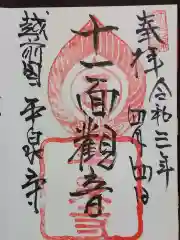 奉拝
令和三年
四月四日
十一面觀音
越前國 平泉寺